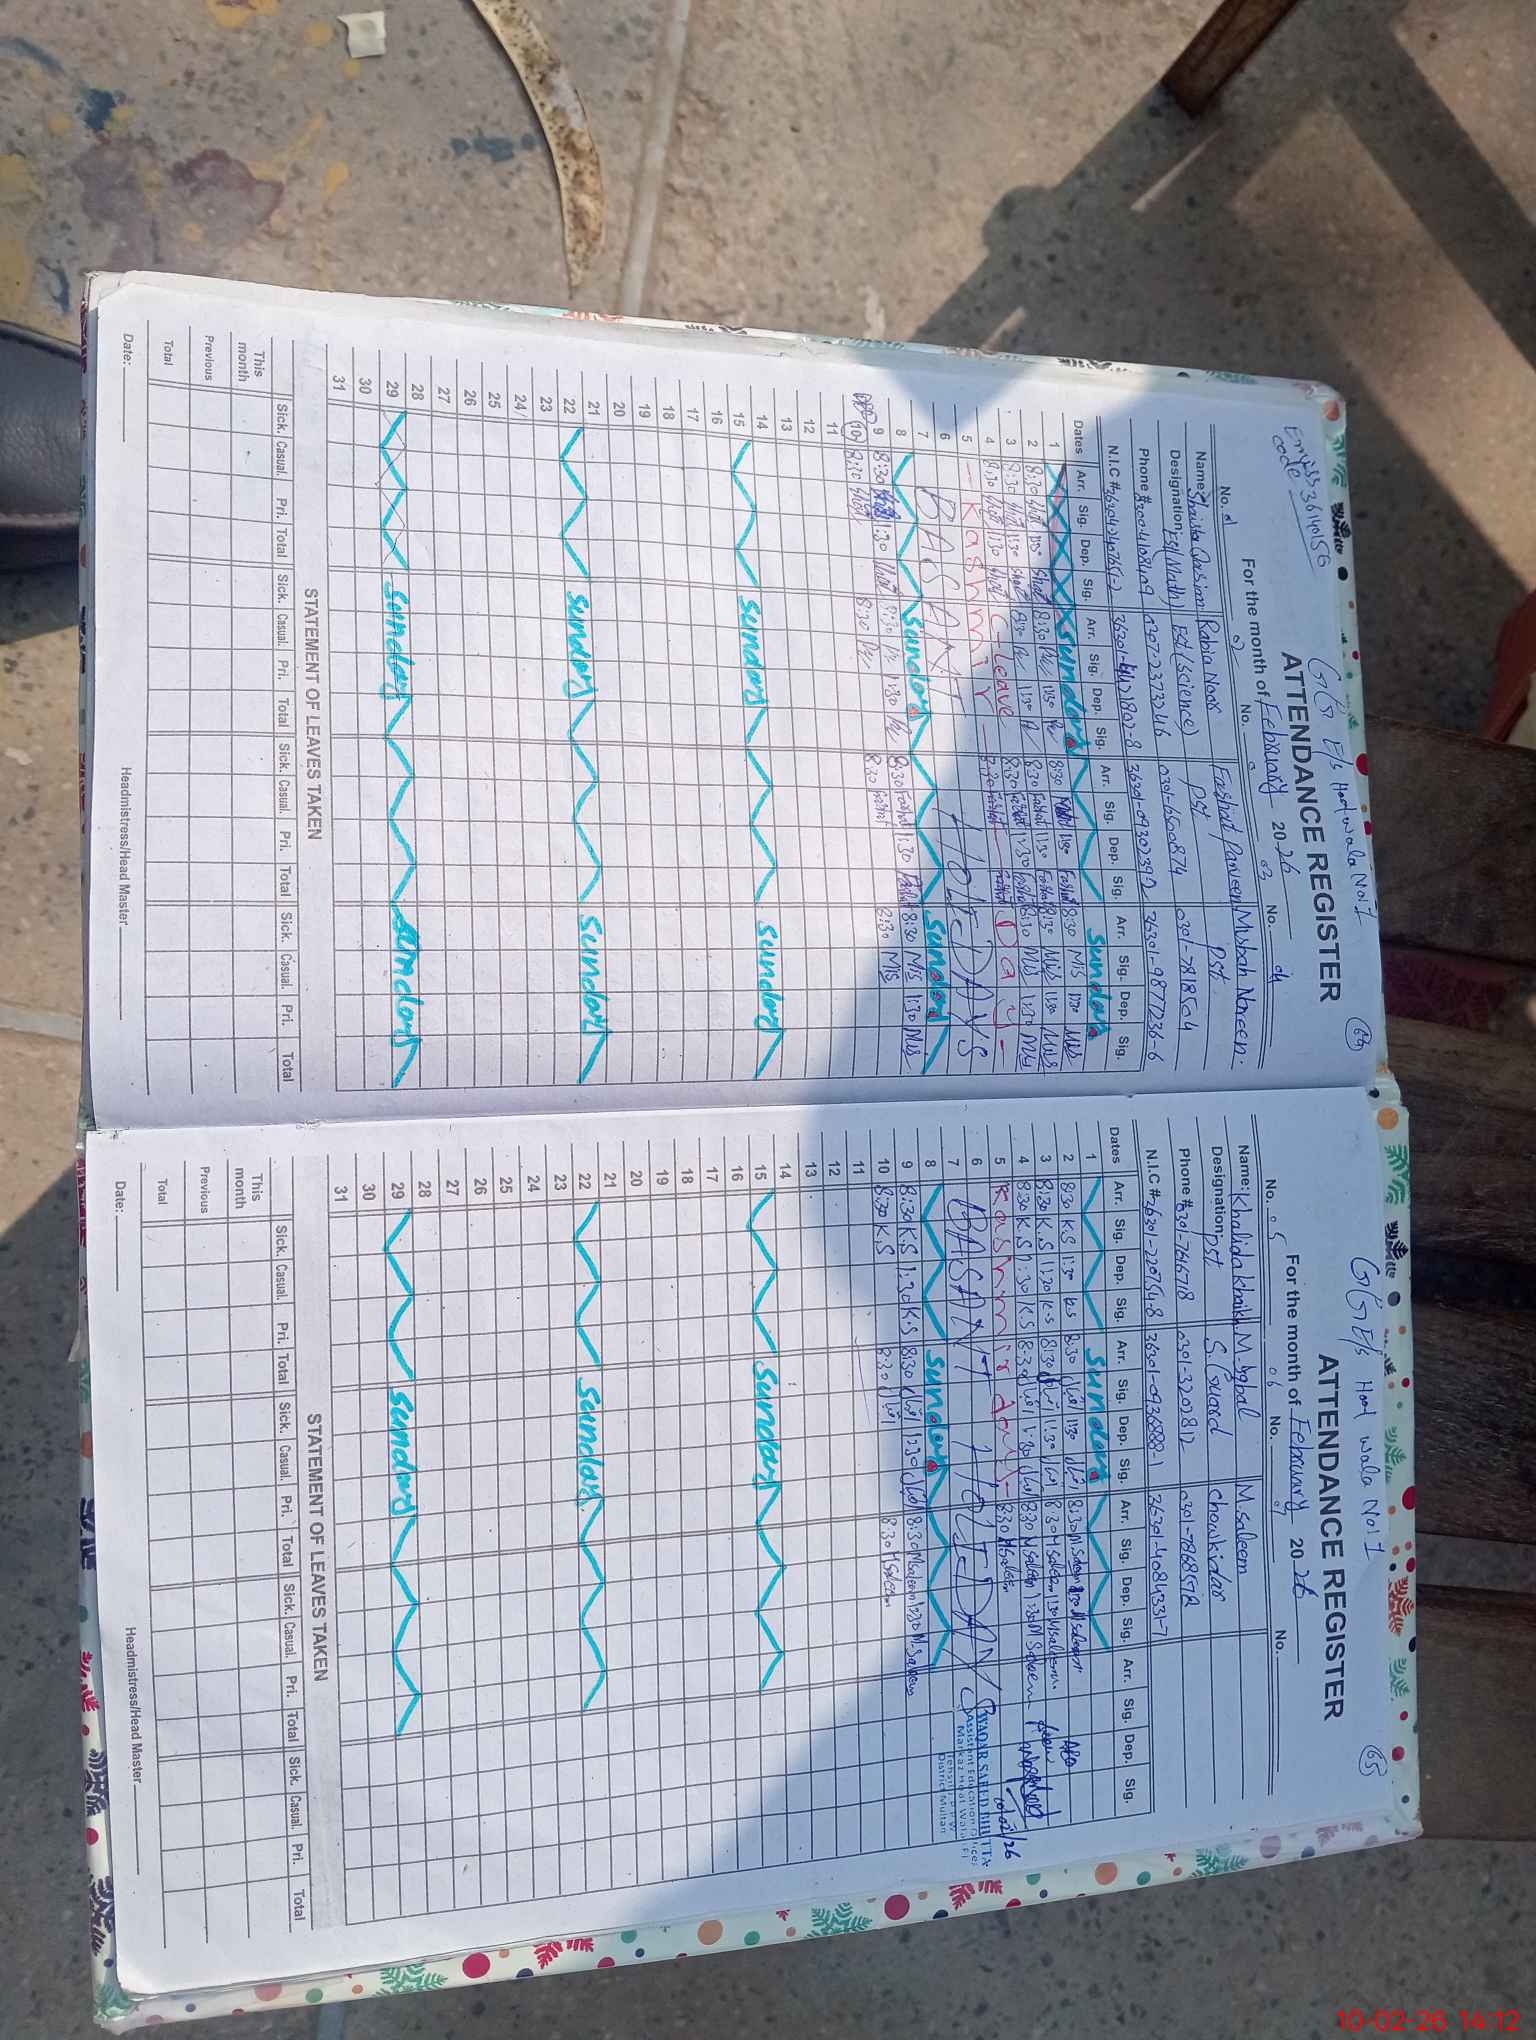 Emiss 36140156
code
G G E/s Hoot Wala No.1
64
ATTENDANCE REGISTER
For the month of February 2026
No. 01 No. 02 No. 03 No. 04
Name: Shaista Qasim Rabia Noor Farhat Parveen Misbah Noreen.
Designation: EST (Math) EST (Science) PST PST.
Phone # 0307-2373246 0301-6600874 0301-7818504
N.I.C #
Dates Arr. Sig. Dep. Sig. Arr. Sig. Dep. Sig. Arr. Sig. Dep. Sig. Arr. Sig. Dep. Sig.
1 Sunday Sunday
2 8:30 1:30 8:30 1:30 8:30 1:30 Farhat 8:30 Mis 1:30 Mis
3 8:30 1:30 8:30 1:30 8:30 Farhat 1:30 Farhat 8:30 Mis 1:30 Mis
4 8:30 1:30 C-leave 8:30 Farhat 1:30 Farhat 8:30 Mis 1:30 Mis
5 Kashmir Day
6
7 BASANT HOLIDAYS
8 Sunday Sunday
9 8:30 1:30 8:30 1:30 8:30 Farhat 1:30 Farhat 8:30 Mis 1:30 Mis
10 8:30 8:30 8:30 Farhat 8:30 Mis
11
12
13
14
15 Sunday Sunday
16
17
18
19
20
21
22 Sunday Sunday
23
24
25
26
27
28
29 Sunday Sunday
30
31
STATEMENT OF LEAVES TAKEN
Sick. Casual. Pri. Total Sick. Casual. Pri. Total Sick. Casual. Pri. Total Sick. Casual. Pri. Total
This month
Previous
Total
Date: Headmistress/Head Master
G G E/s Hoot Wala No 1
65
ATTENDANCE REGISTER
For the month of February 2026
No. 05 06 No. 07 No.
Name: Khalida Khanam M. Iqbal M. Saleem
Designation: PST S. Guard Chowkidar
Phone # 0301-7616718 0301-3202812
N.I.C # 36301-0936888-1 36301-4084331-7
Dates Arr. Sig. Dep. Sig. Arr. Sig. Dep. Sig. Arr. Sig. Dep. Sig. Arr. Sig. Dep. Sig.
1 Sunday
2 8:30 K.S 1:30 K.S 8:30 1:30 8:30 M Saleem 1:30 M Saleem
3 8:30 K.S 1:30 K.S 8:30 1:30 8:30 M Saleem 1:30 M Saleem
4 8:30 K.S 1:30 K.S 8:30 1:30 8:30 M Saleem 1:30 M Saleem
5 Kashmir day 8:30 M Saleem
6
7 BASANT HOLIDAYS
8 Sunday
9 8:30 K.S 1:30 K.S 8:30 1:30 8:30 M Saleem 1:30 M. Saleem
10 8:30 K.S 8:30 8:30 M Saleem
11
12
13
14
15 Sunday
16
17
18
19
20
21
22 Sunday
23
24
25
26
27
28
29 Sunday
30
31
10/02/26
WAQAR SAEED BHUTTA
Assistant Education Officer
Markaz Hoat Wala
District Multan
STATEMENT OF LEAVES TAKEN
Sick. Casual. Pri. Total Sick. Casual. Pri. Total Sick. Casual. Pri. Total Sick. Casual. Pri. Total
This month
Previous
Total
Date: Headmistress/Head Master
10-02-26 14:12